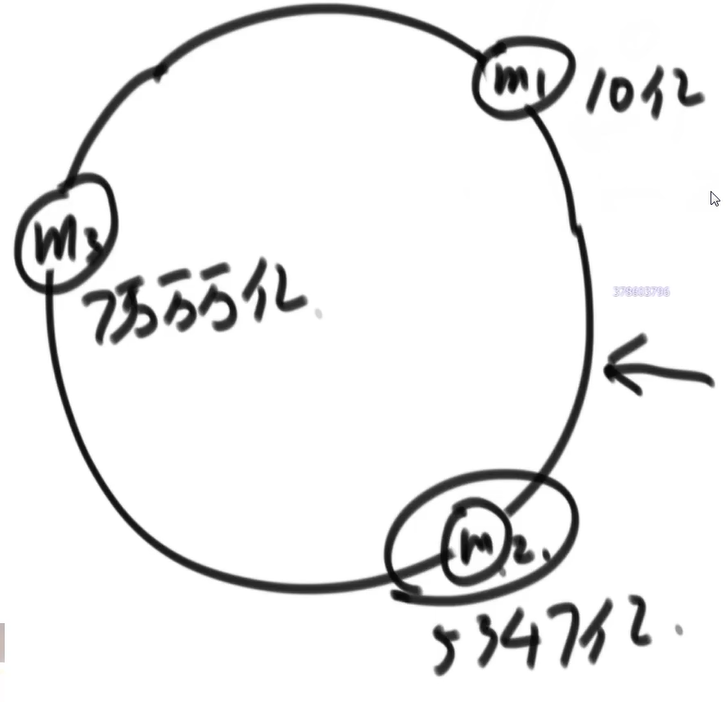 m1 10亿
m3
7万万万亿.
378603796
m2.
5347亿.